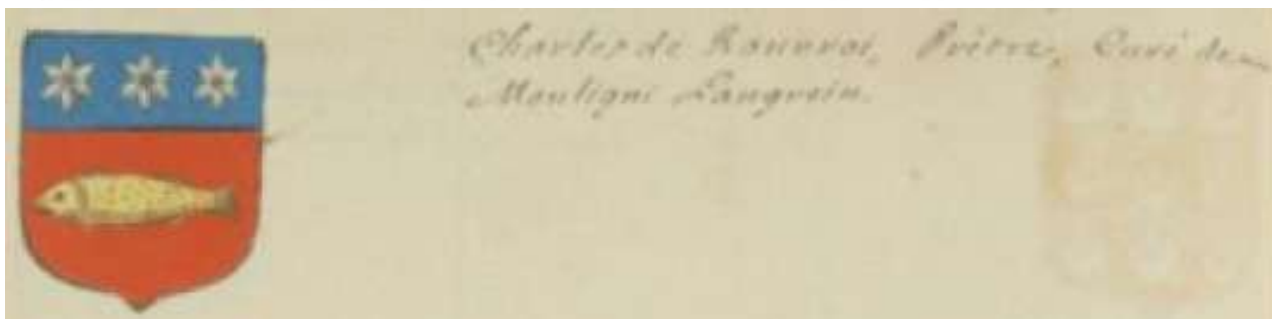 Charles de Rouvroi, Prêtre, Curé de
Montigni Langrain.